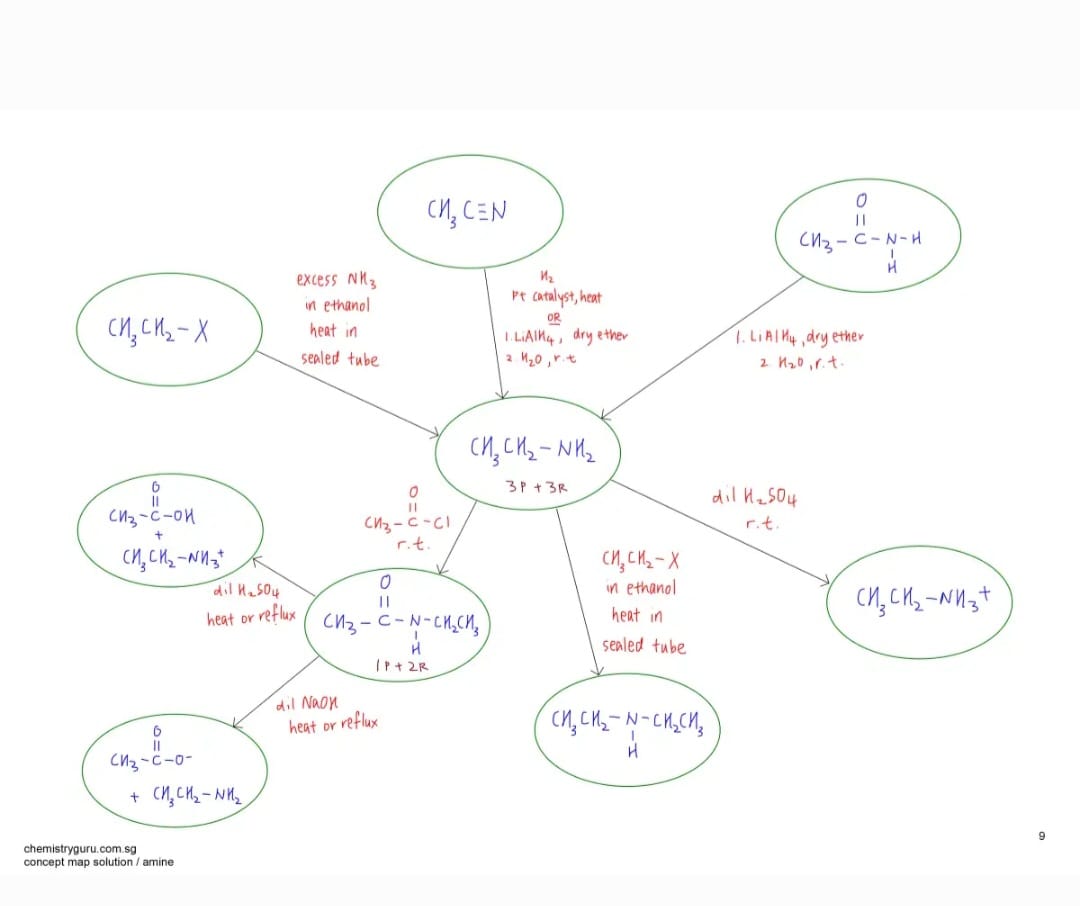 CH₃C≡N
O
||
CH₃-C-N-H
|
H
CH₃CH₂-X
excess NH₃
in ethanol
heat in
sealed tube
H₂
Pt catalyst, heat
OR
1. LiAlH₄, dry ether
2 H₂O, r.t
1. LiAlH₄, dry ether
2 H₂O, r.t.
CH₃CH₂-NH₂
3P + 3R
O
||
CH₃-C-OH
+
CH₃CH₂-NH₃⁺
O
||
CH₃-C-Cl
r.t.
dil H₂SO₄
r.t.
CH₃CH₂-X
in ethanol
heat in
sealed tube
CH₃CH₂-NH₃⁺
dil H₂SO₄
heat or reflux
O
||
CH₃-C-N-CH₂CH₃
|
H
1P + 2R
dil NaOH
heat or reflux
CH₃CH₂-N-CH₂CH₃
|
H
O
||
CH₃-C-O⁻
+ CH₃CH₂-NH₂
9
chemistryguru.com.sg
concept map solution / amine